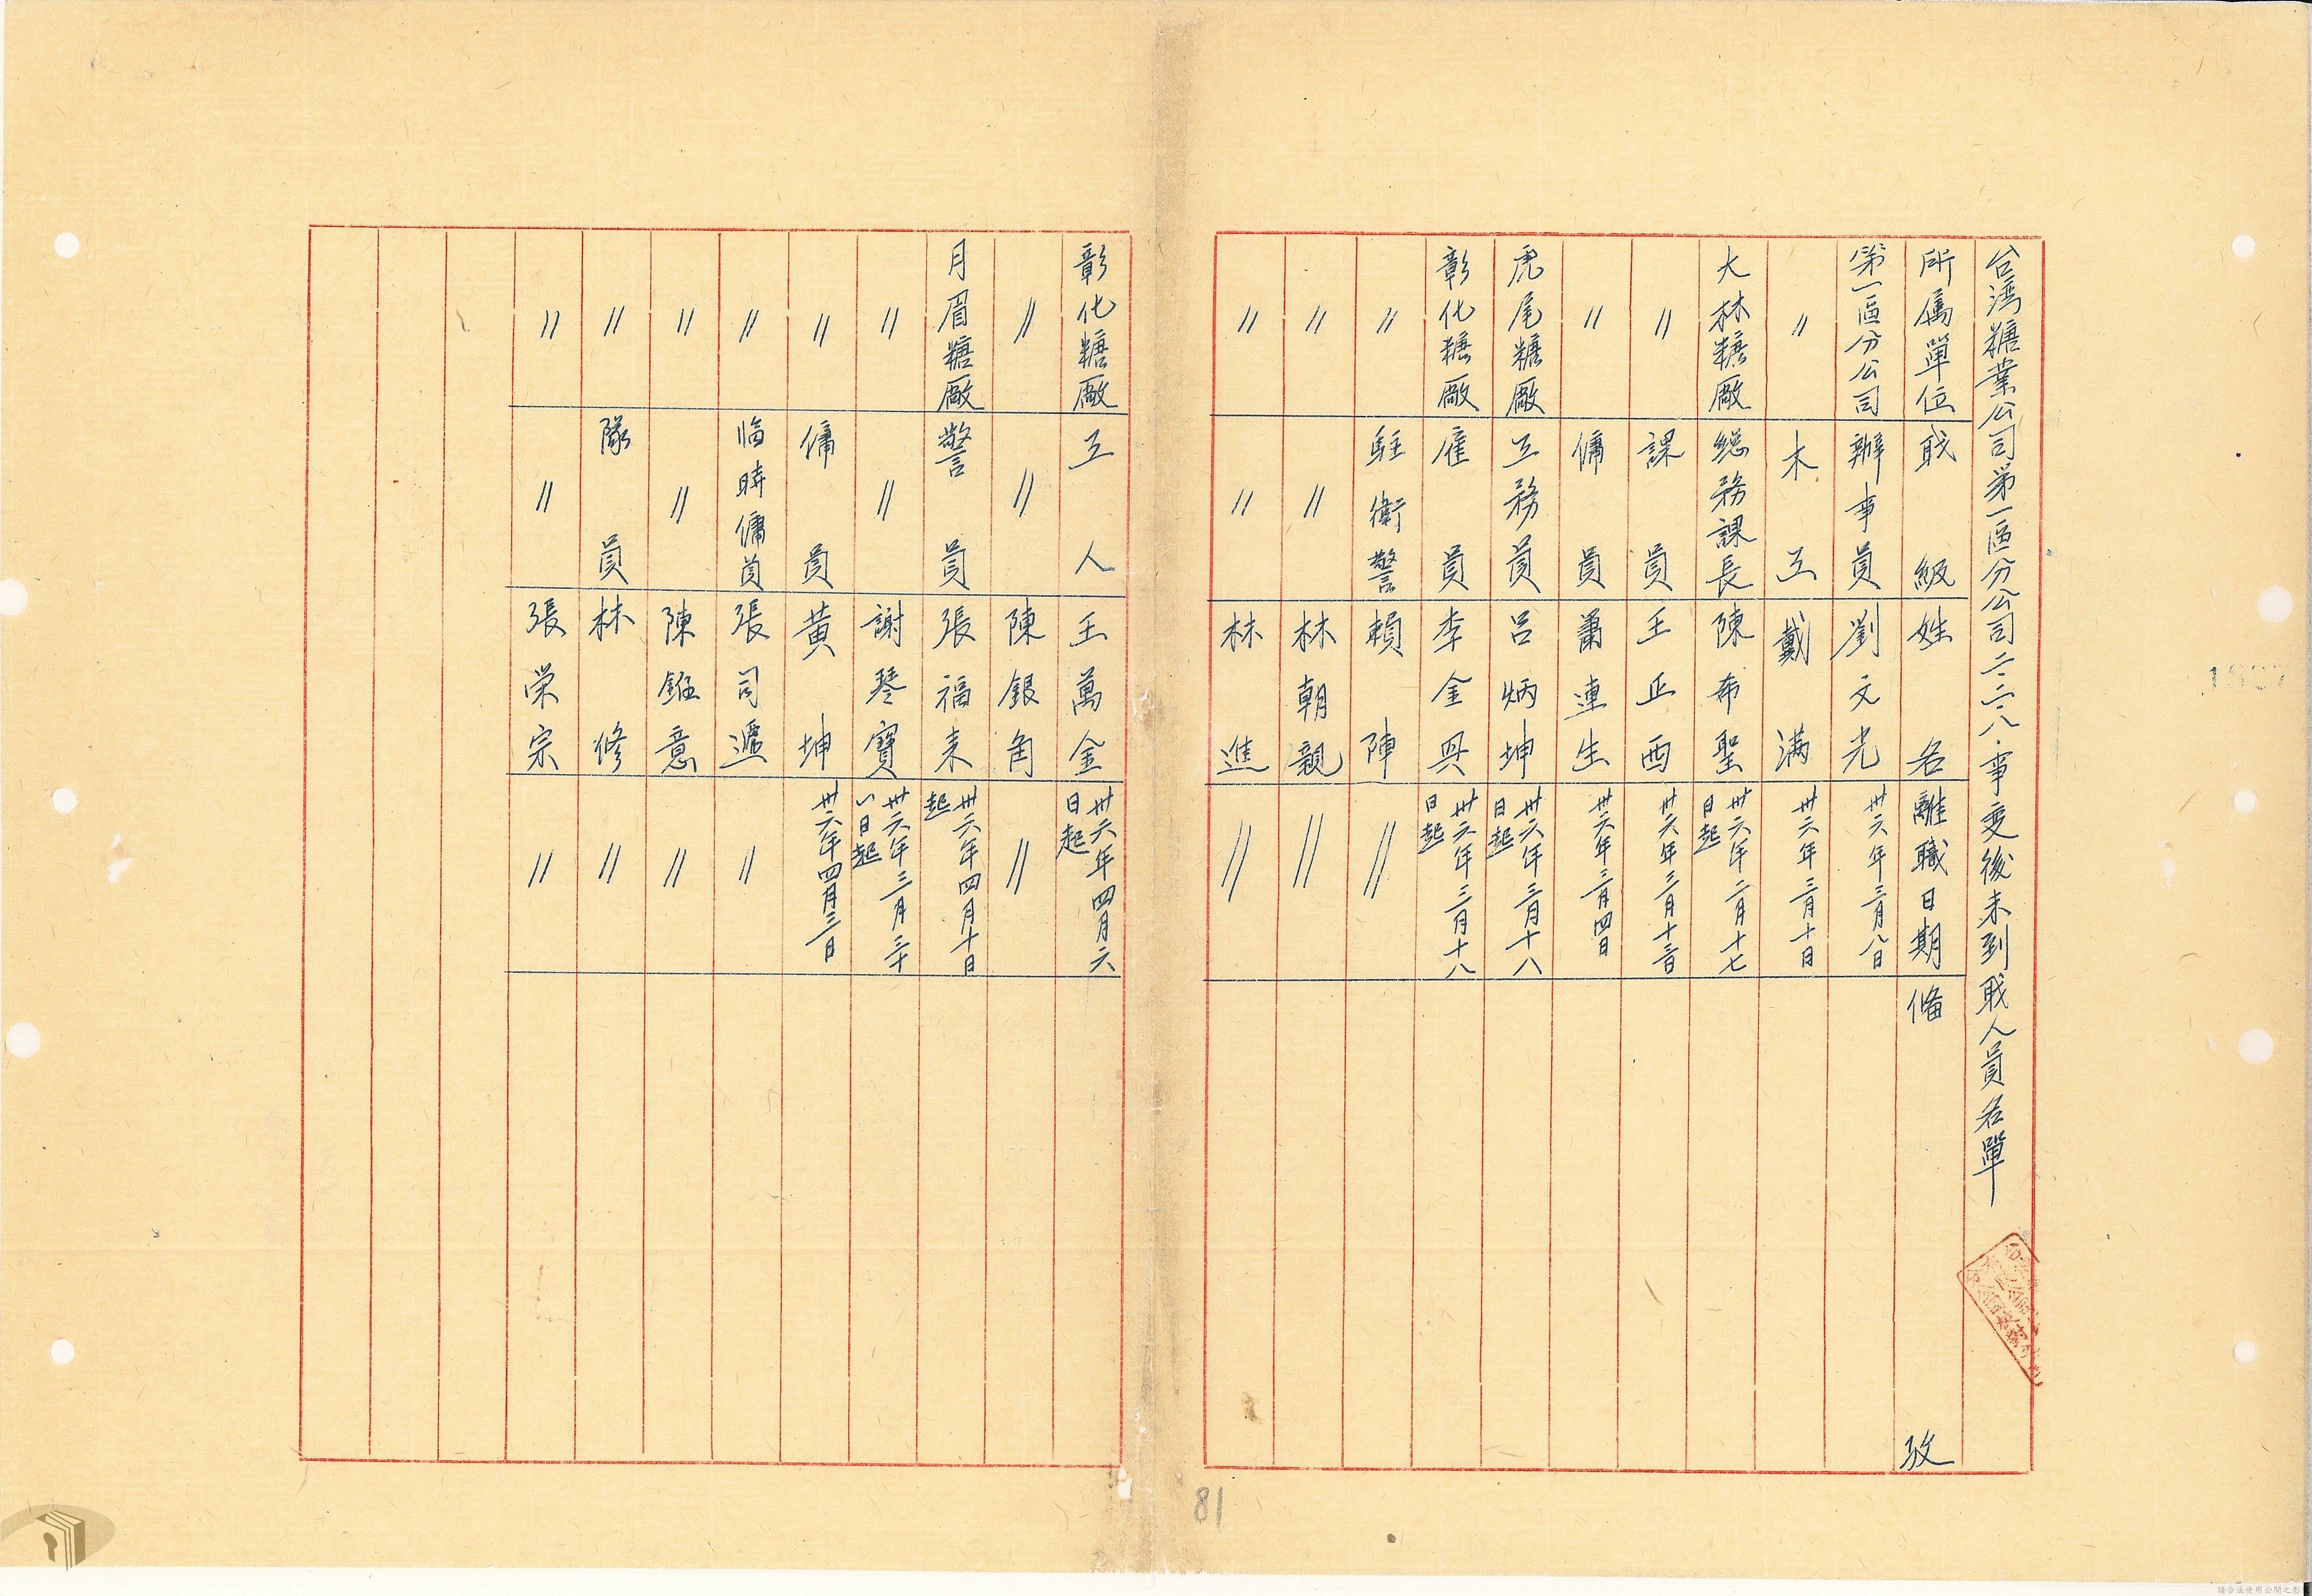 台湾糖業公司第一區分公司二·二八·事变後未到戝人員名單
所属單位 戝級 姓名 離職日期 俻攷
第一區分公司 辦事員 劉文光 卅六年三月八日
〃 木工 戴满 卅六年三月十日
大林糖廠 総務課長 陳布聖 卅六年二月十七日起
〃 課員 王正西 卅六年三月十三日
〃 傭員 蕭連生 卅六年三月四日
虎尾糖廠 工務員 呂炳坤 卅六年三月十八日起
彰化糖廠 雇員 李金興 卅六年三月十八日起
〃 駐衛警 賴陣 〃
〃 〃 林朝親 〃
〃 〃 林進 〃
彰化糖廠 工人 王萬金 卅六年四月六日起
〃 〃 陳銀角 〃
月眉糖廠 警員 張福来 卅六年四月十日起
〃 〃 謝琴寶 卅六年三月三十一日起
〃 傭員 黄坤 卅六年四月三日
〃 临時傭員 張司遞 〃
〃 〃 陳 意 〃
〃 隊員 林修 〃
〃 〃 張荣宗 〃
81
請合法使用公開之影